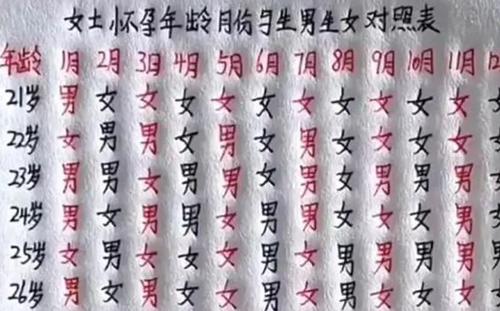 女士怀孕年龄月份与生男生女对照表
年龄 1月 2月 3月 4月 5月 6月 7月 8月 9月 10月 11月 12
21岁 男 女 女 女 女 女 女 女 女 女 女
22岁 女 男 男 女 男 女 男 男 女 女 女
23岁 男 男 女 男 男 女 男 女 男 男 男
24岁 男 女 男 男 女 男 男 女 女 女 男
25岁 女 男 女 女 女 男 女 男 男 男 男
26岁 男 女 男 女 女 男 女 男 女 女 女